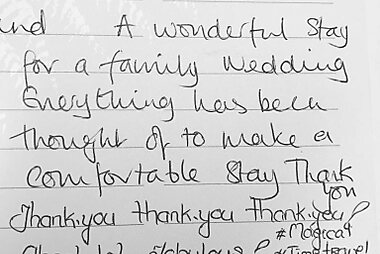 A wonderful stay
for a family wedding
Everything has been
thought of to make a
comfortable stay Thank
you
Thank.you thank.you Thank.you!
#Magical